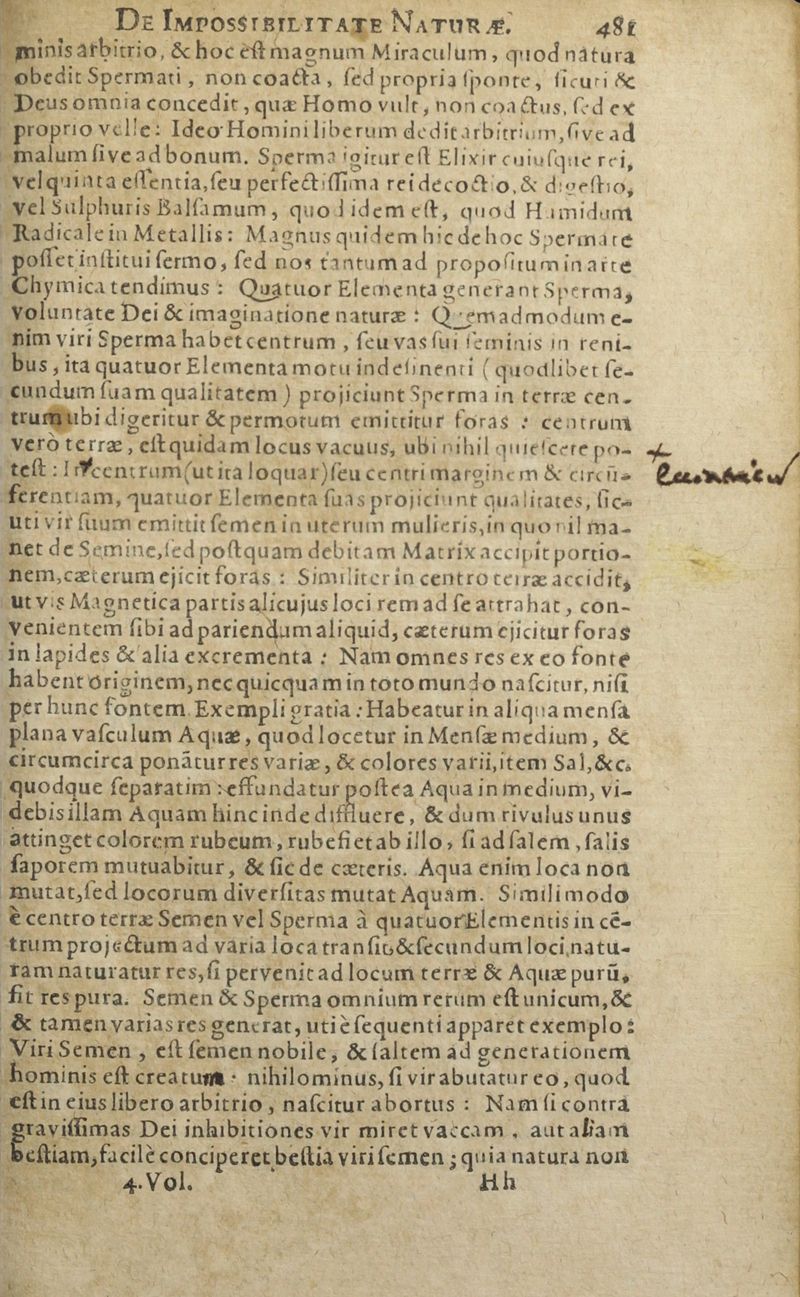 DE IMPOSSIBILITATE NATURÆ. 481
minis arbitrio, & hoc eſt magnum Miraculum, quod natura
obedit Spermati, non coacta, ſed propria ſponte, ſicuti &
Deus omnia concedit, quæ Homo vult, non coactus, ſed ex
proprio velle: Ideo Homini liberum dedit arbitrium, ſive ad
malum ſive ad bonum. Sperma igitur eſt Elixir cuiuſque rei,
vel quinta eſſentia, ſeu perfectiſſima rei decoctio, & digeſtio,
vel Sulphuris Balſamum, quod idem eſt, quod Humidum
Radicale in Metallis: Magnus quidem hic de hoc Spermate
poſſet inſtitui ſermo, ſed nos tantum ad propoſitum in arte
Chymica tendimus: Quatuor Elementa generant Sperma,
voluntate Dei & imaginatione naturæ: Quemadmodum e-
nim viri Sperma habet centrum, ſeu vas ſui ſeminis in reni-
bus, ita quatuor Elementa motu indeſinenti (quodlibet ſe-
cundum ſuam qualitatem) projiciunt Sperma in terræ cen-
trum ubi digeritur & per motum emittitur foras: centrum
verò terræ, eſt quidam locus vacuus, ubi nihil quieſcere po-
teſt: In centrum (ut ita loquar) ſeu centri marginem & circū-
ferentiam, quatuor Elementa ſuas projiciunt qualitates, ſic-
uti vir ſuum emittit ſemen in uterum mulieris, in quo nil ma-
net de Semine, ſed poſtquam debitam Matrix accipit portio-
nem, cæterum ejicit foras: Similiter in centro terræ accidit,
ut vis Magnetica partis alicujus loci rem ad ſe attrahat, con-
venientem ſibi ad pariendum aliquid, cæterum ejicitur foras
in lapides & alia excrementa: Nam omnes res ex eo fonte
habent originem, nec quicquam in toto mundo naſcitur, niſi
per hunc fontem. Exempli gratia: Habeatur in aliqua menſa
plana vaſculum Aquæ, quod locetur in Menſæ medium, &
circumcirca ponātur res variæ, & colores varii, item Sal, &c.
quodque ſeparatim: effundatur poſtea Aqua in medium, vi-
debis illam Aquam hinc inde diffluere, & dum rivulus unus
attinget colorem rubeum, rubefiet ab illo, ſi ad ſalem, ſalis
ſaporem mutuabitur, & ſic de cæteris. Aqua enim loca non
mutat, ſed locorum diverſitas mutat Aquam. Simili modo
è centro terræ Semen vel Sperma à quatuor Elementis in cē-
trum projectum ad varia loca tranſit, & ſecundum loci natu-
ram naturatur res, ſi pervenit ad locum terræ & Aquæ purū,
fit res pura. Semen & Sperma omnium rerum eſt unicum, &
& tamen varias res generat, uti è ſequenti apparet exemplo:
Viri Semen, eſt ſemen nobile, & ſaltem ad generationem
hominis eſt creatum: nihilominus, ſi vir abutatur eo, quod
eſt in eius libero arbitrio, naſcitur abortus: Nam ſi contra
graviſſimas Dei inhibitiones vir miret vaccam, aut aliam
beſtiam, facilè conciperet beſtia viri ſemen; quia natura non
4. Vol. Hh